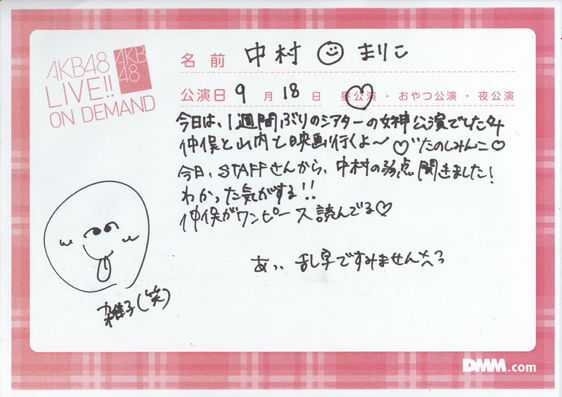 AKB48
LIVE!!
ON DEMAND
AKB
48
名前 中村 まりこ
公演日 9月 18日 昼公演・おやつ公演・夜公演
今日は、1週間ぶりのシアターの女神公演でした
仲俣と山内と映画行くよ〜♡たのしみんこ♡
今日、STAFFさんから、中村の弱点聞きました!
わかった気がする!!
仲俣がワンピース読んでる♡
あっ、乱早ですみませんたっ
雑子(笑)
DMM.com